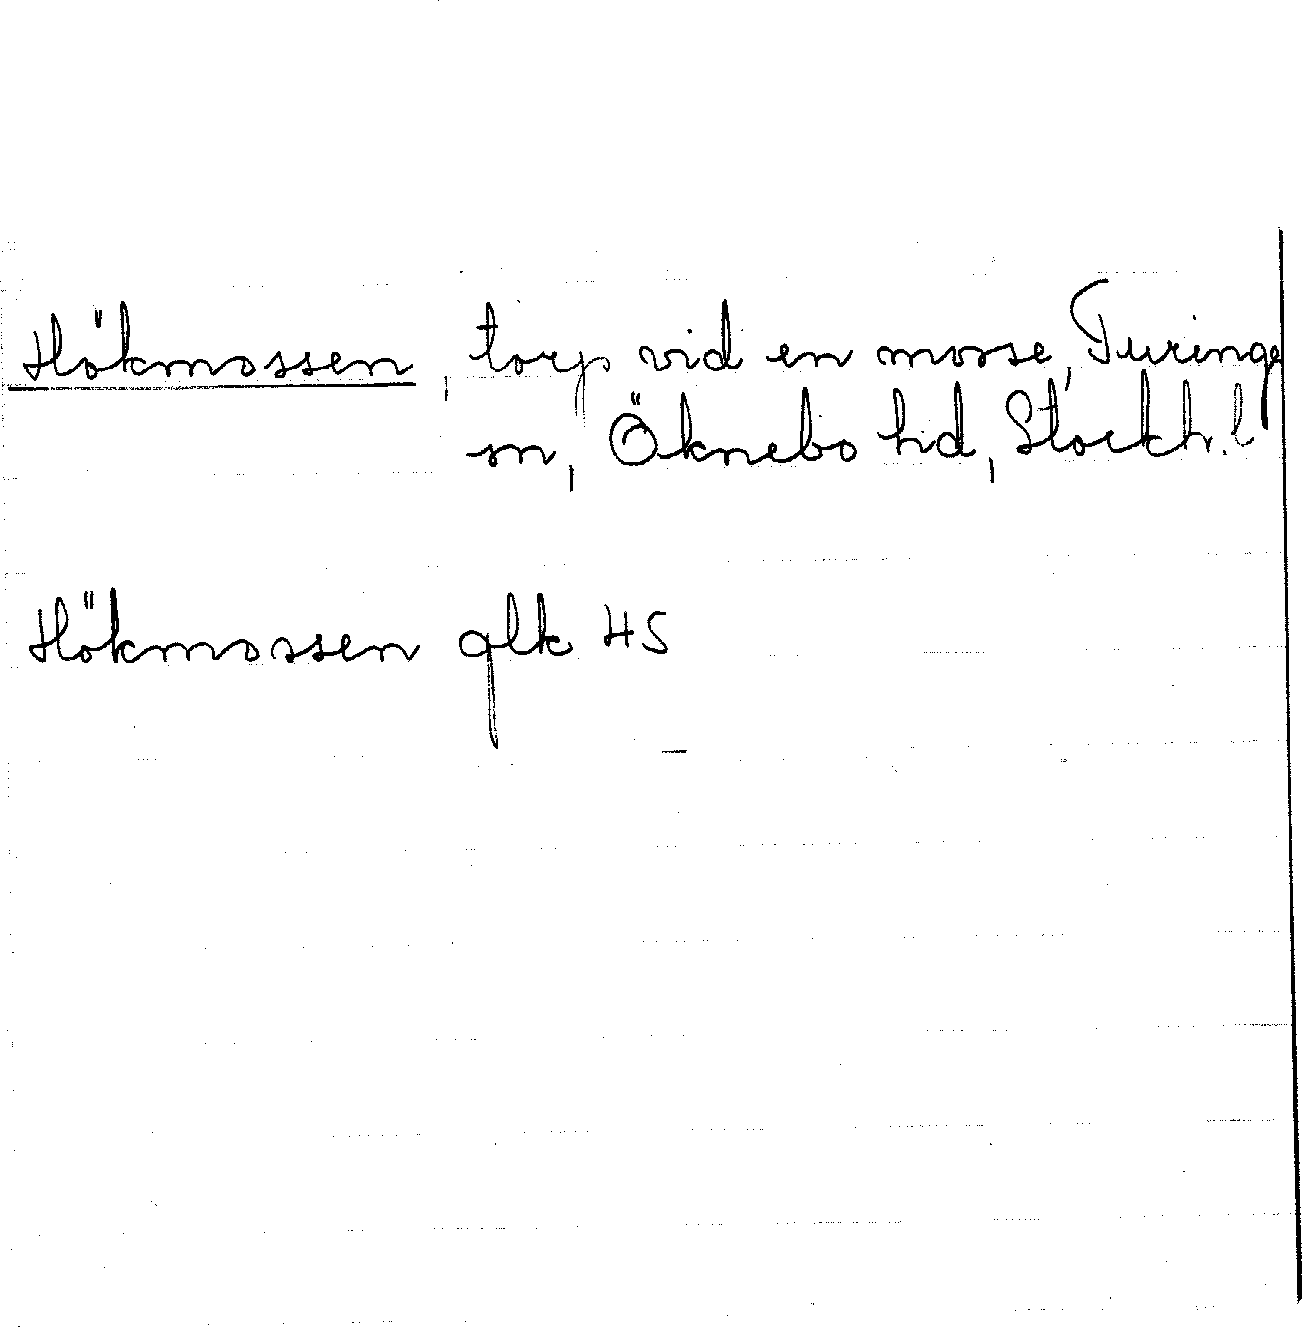 Hökmossen, torp vid en mosse, Turinge
sn, Öknebo hd, Stockh. l
Hökmossen glk 45